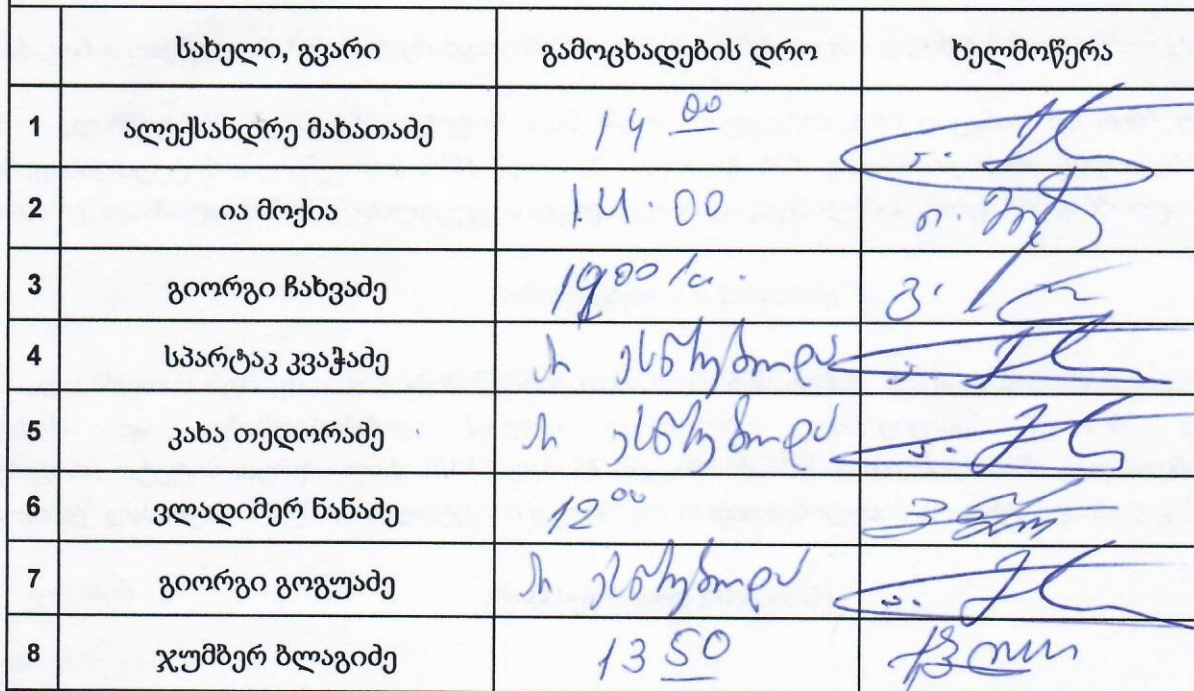 სახელი, გვარი გამოცხადების დრო ხელმოწერა
1 ალექსანდრე მახათაძე 14 00
2 ია მოქია 11.00
3 გიორგი ჩახვაძე
4 სპარტაკ კვაჭაძე არ ესწრებოდა
5 კახა თედორაძე არ ესწრებოდა
6 ვლადიმერ ნანაძე 12 00
7 გიორგი გოგუაძე არ ესწრებოდა
8 ჯუმბერ ბლაგიძე 13 50